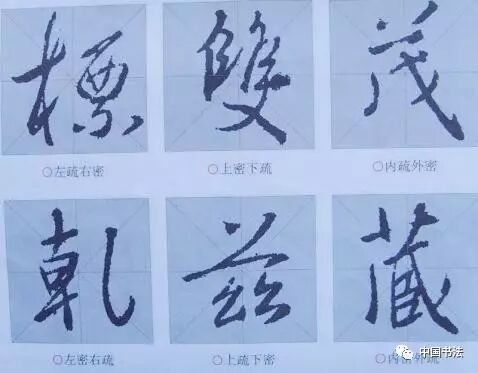 標 雙 茂
○左疏右密 ○上密下疏 ○内疏外密
乾 兹 藏
○左密右疏 ○上疏下密 ○内密外疏
中国书法